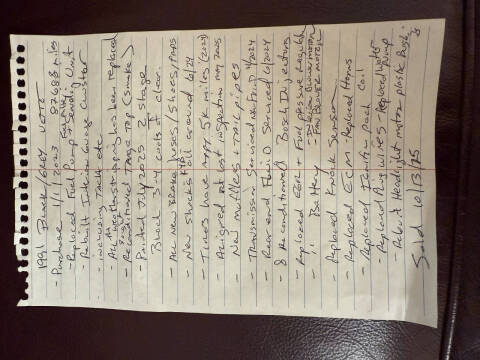 1991 Black/Grey Vette
- Purchase 1/1/2023 87688 miles
- Replaced Fuel Pump + Sending Unit
Rebuilt Interior Gauge Cluster
- including Tach etc
All weatherstripping has been replaced
- Reconditioned Targa Top (Smoke)
- Painted July 2025 2 Stage
Black 3-4 coats of clear.
- All New Brake Hoses/Shoes/Pads
- New Shocks all around 6/24
- Tires have Appr 5K miles (2021)
- Aligned at last inspection May 2025
- New mufflers + Tail pipes
- Transmission Serviced 4/2024
- Rear end Fluid Serviced 6/2024
- 8 Reconditioned Bosch Injectors
- Replaced EGR + Fuel pressure Regulator
- " Battery
- Replaced Knock Sensor
- Replaced ECM - Replaced Horns
- Replaced Ignition pack Coil
- Replaced Plug wires - Replaced water Pump
- Rebuilt Headlight motor plastic Bushings
Sold 10/13/25